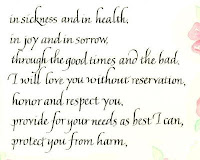 in sickness and in health,
in joy and in sorrow,
through the good times and the bad.
I will love you without reservation,
honor and respect you,
provide for your needs as best I can,
protect you from harm,